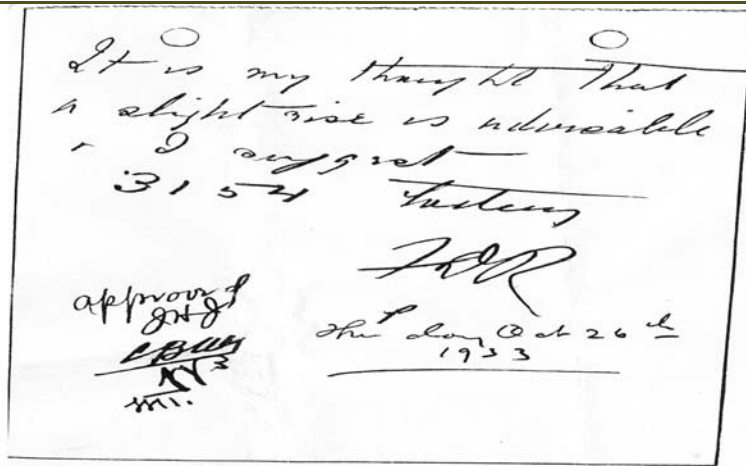 It is my thought that
a slight rise is advisable
+ I suggest
31 54 today
FDR
Thursday Oct 26th
1933
approved
JHJ